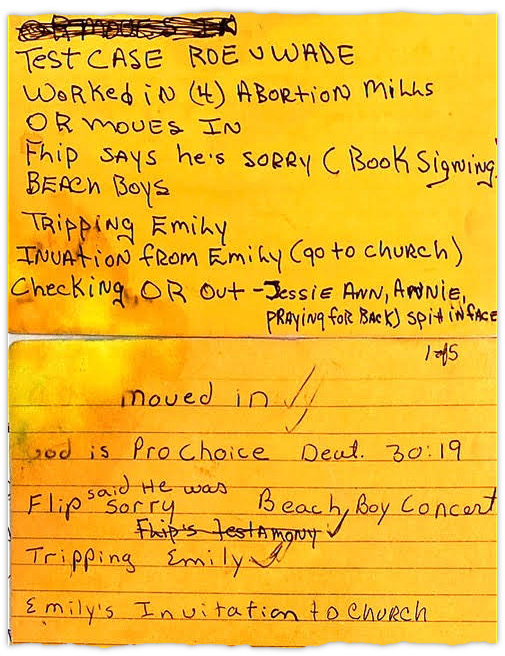 OR MOVES IN
TEST CASE ROE V WADE
WORKED iN (4) ABORTION MiLLS
OR MOVES IN
Flip SAYS he's SORRY ( BOOK Signing)
BEACH BOYS
TRIPPING EMILY
INVATION fROM EMILY (go to CHURCH)
Checking OR Out - JESSIE ANN, ANNIE,
PRAYING foR BACK) Spit iN fACE
1 of 5
moved in ✓✓
God is Pro Choice Deut. 30:19
said He was
Flip Sorry Beach Boy Concert
Flip's TestAMONY ✓
Tripping Emily ✓
Emily's Invitation to CHURCH